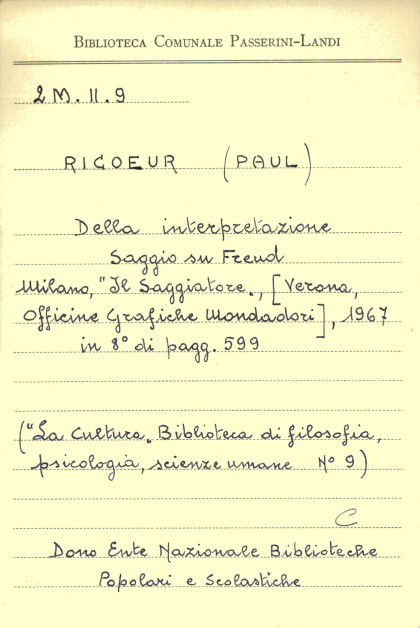 BIBLIOTECA COMUNALE PASSERINI-LANDI
2 M. II. 9
RICOEUR (PAUL)
Della interpretazione
Saggio su Freud
Milano, "Il Saggiatore„, [Verona,
Officine Grafiche Mondadori], 1967
in 8° di pagg. 599
("La Cultura„ Biblioteca di filosofia,
psicologia, scienze umane N° 9)
C
Dono Ente Nazionale Biblioteche
Popolari e Scolastiche